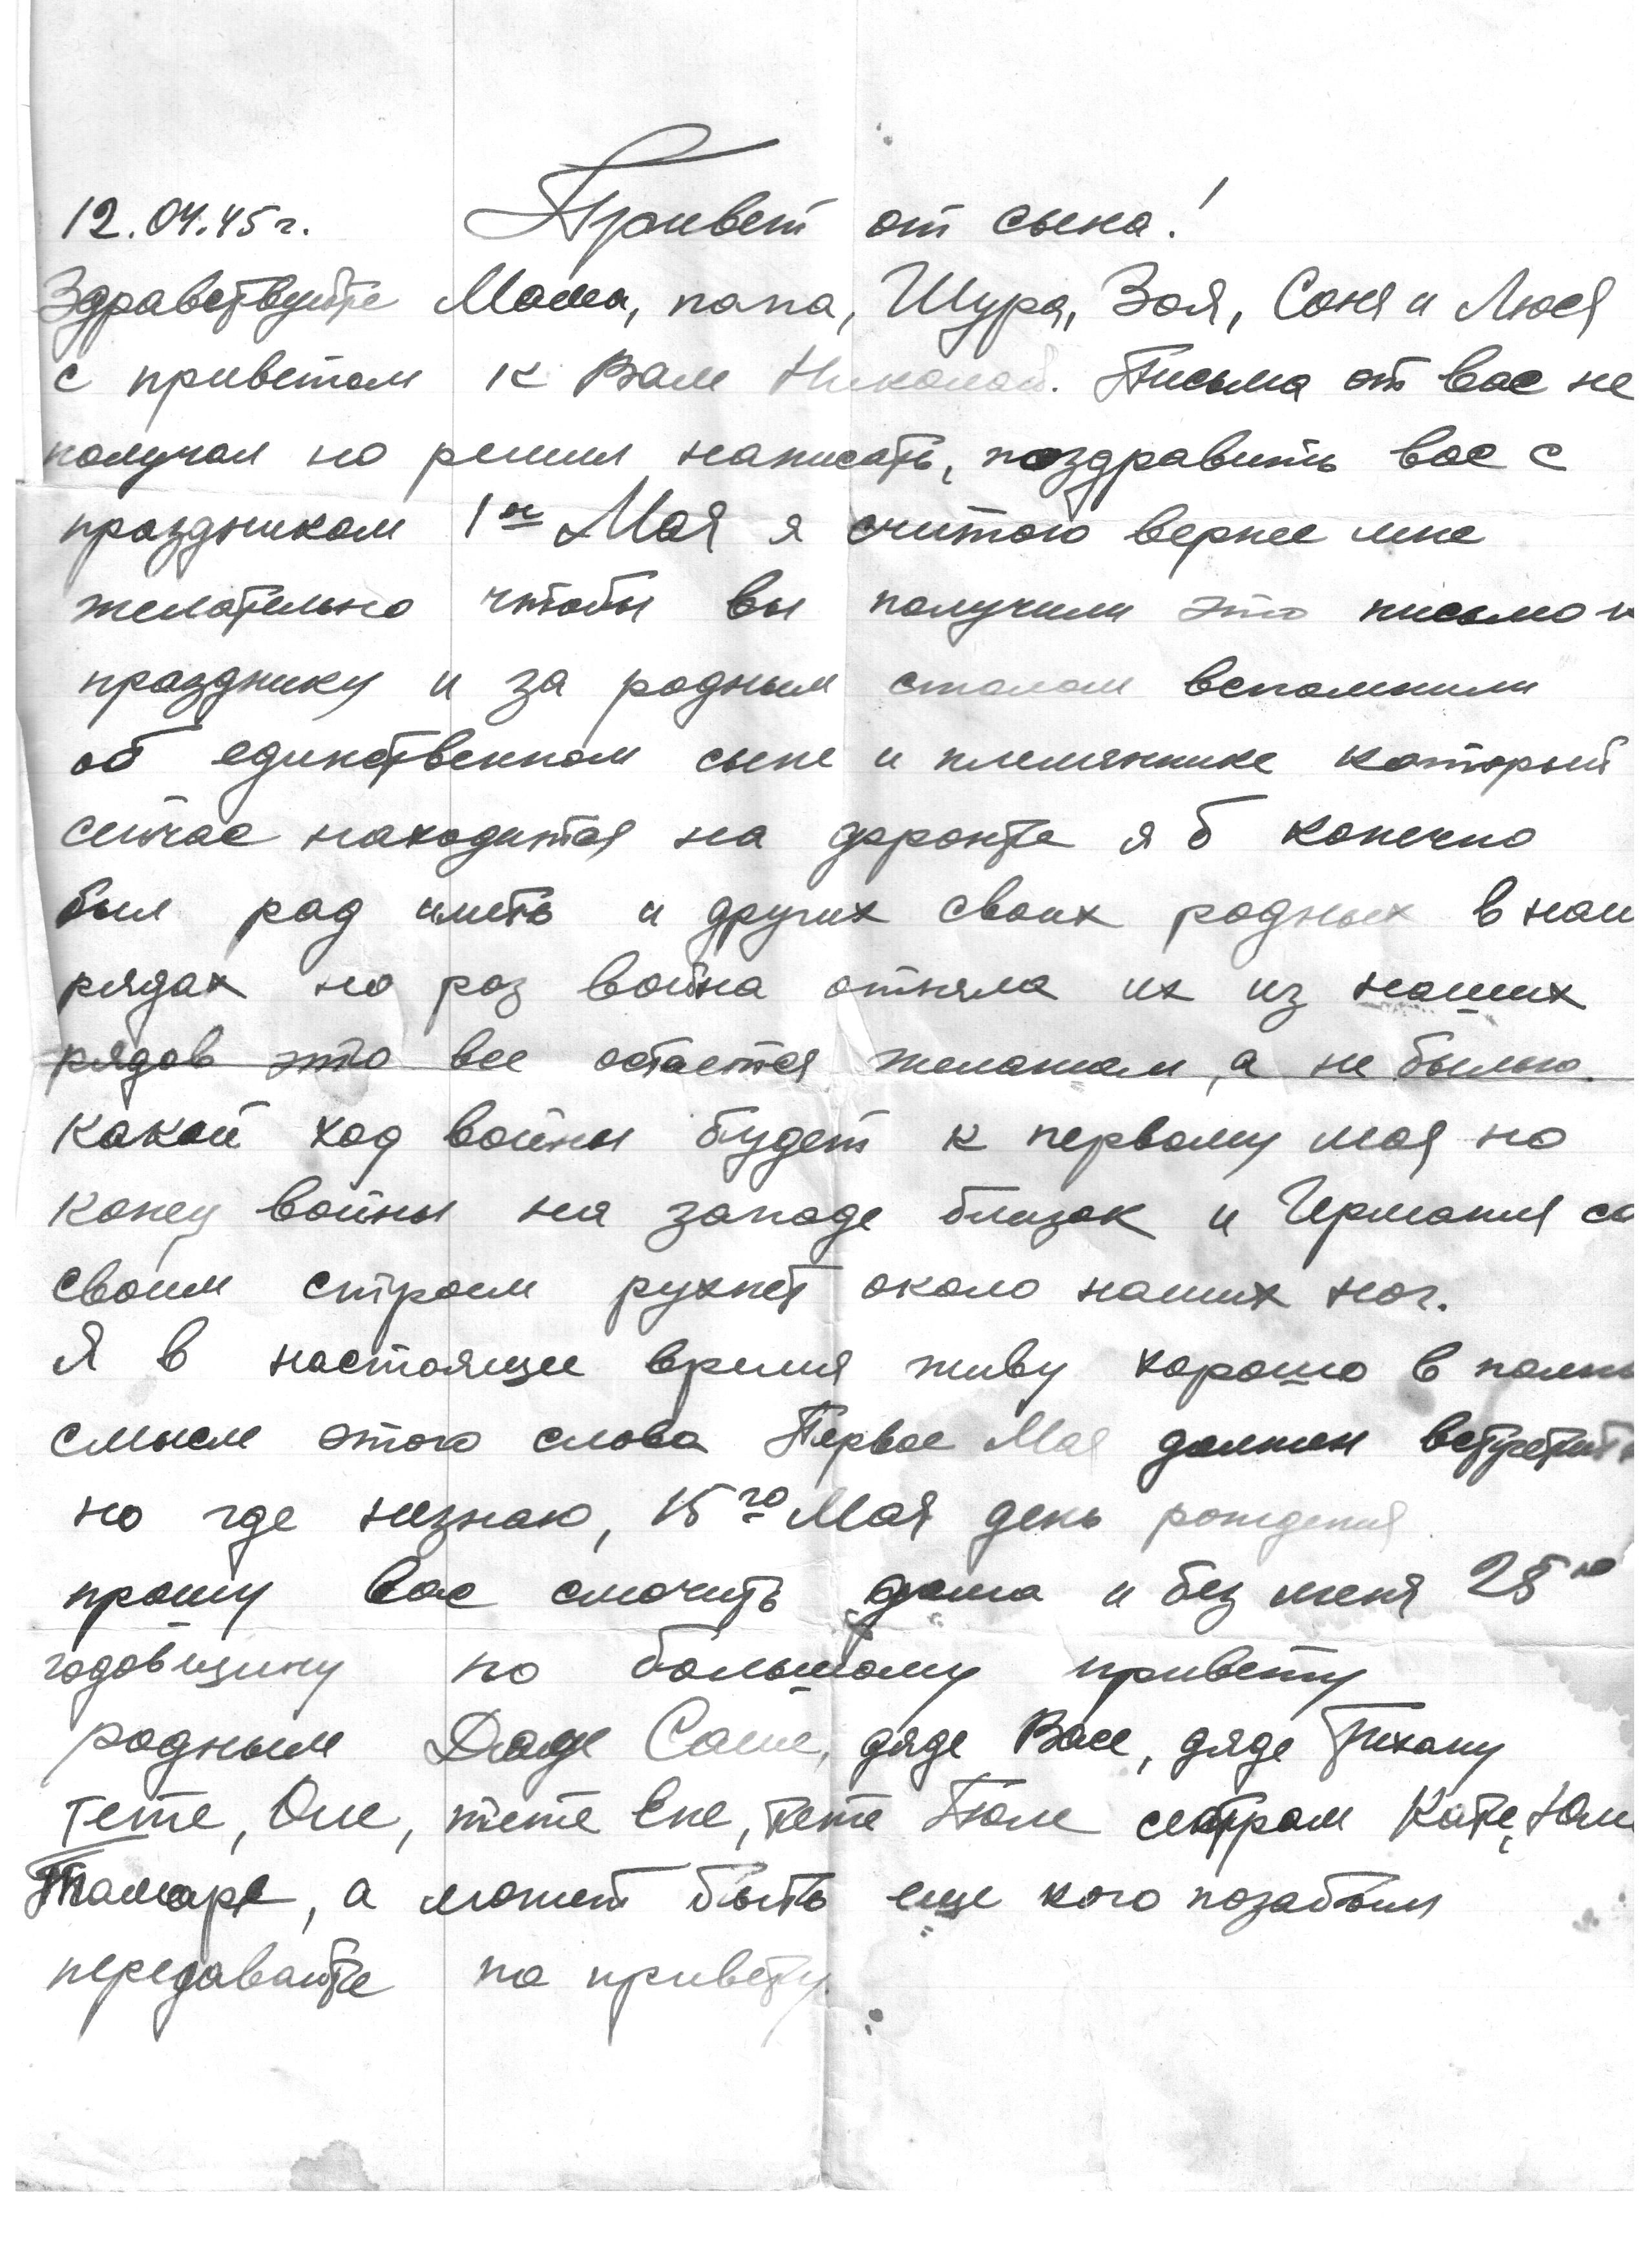 12.04.45г. Привет от сына!
Здравствуйте Мама, папа, Шура, Зоя, Соня и Люся
с приветом к Вам Николай. Письма от вас не
получал но решил написать, поздравить вас с
праздником 1ое Мая я считаю вернее мне
желательно чтобы вы получили это письмо к
празднику и за родным столом вспомнили
об единственном сыне и племяннике который
сейчас находится на фронте я б конечно
был рад иметь и других своих родных в наш
рядах но раз война отняла их из наших
рядов это все остается желанием, а не былью.
Какой ход войны будет к первому мая но
конец войны на западе близок и Германия со
своим строем рухнет около наших ног.
Я в настоящее время живу хорошо в полн
смысле этого слова Первое Мая должен встретить
но где незнаю, 15го Мая день рождения
прошу вас смочить дома и без меня 25ю
годовщину по большому привету
родным Дяде Саше, дяде Васе, дяде Тихану
Тете, Оле, тете Ене, тете Поле сестрам Кате, Юле
Тамаре, а может быть еще кого позабыл
передавайте по привету.